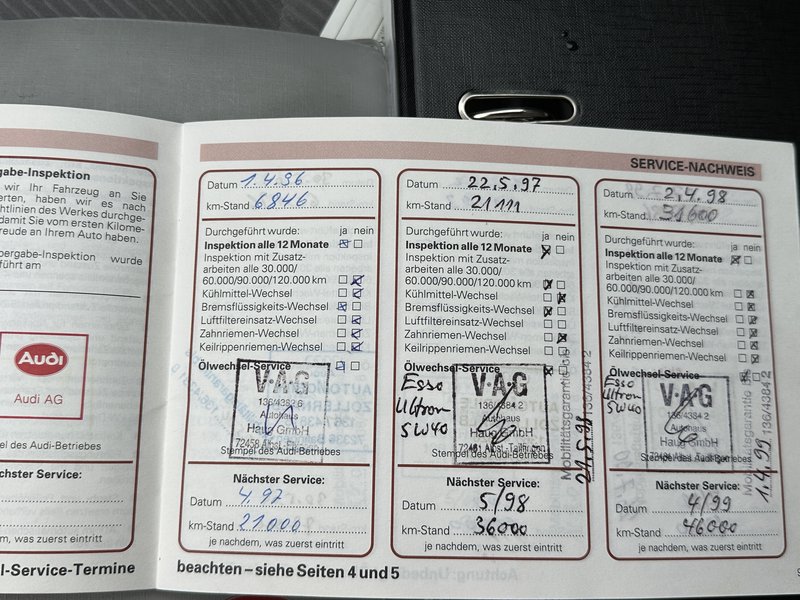 gabe-Inspektion
wir Ihr Fahrzeug an Sie
erten, haben wir es nach
htlinien des Werkes durchge-
damit Sie vom ersten Kilome-
reude an Ihrem Auto haben.
bergabe-Inspektion wurde
führt am
Audi
Audi AG
pel des Audi-Betriebes
ächster Service:
, was zuerst eintritt
l-Service-Termine
SERVICE-NACHWEIS
Datum 1.4.96
km-Stand 6846
Durchgeführt wurde: ja nein
Inspektion alle 12 Monate
Inspektion mit Zusatz-
arbeiten alle 30.000/
60.000/90.000/120.000 km
Kühlmittel-Wechsel
Bremsflüssigkeits-Wechsel
Luftfiltereinsatz-Wechsel
Zahnriemen-Wechsel
Keilrippenriemen-Wechsel
Ölwechsel-Service
V·A·G
136/4382 6
Autohaus
Haug GmbH
Stempel des Audi-Betriebes
Nächster Service:
Datum 4.97
km-Stand 21000
je nachdem, was zuerst eintritt
Datum 22.5.97
km-Stand 21111
Durchgeführt wurde: ja nein
Inspektion alle 12 Monate
Inspektion mit Zusatz-
arbeiten alle 30.000/
60.000/90.000/120.000 km
Kühlmittel-Wechsel
Bremsflüssigkeits-Wechsel
Luftfiltereinsatz-Wechsel
Zahnriemen-Wechsel
Keilrippenriemen-Wechsel
Ölwechsel-Service
Esso
Ultron
5W40
V·A·G
136/4384 2
Autohaus
Haug GmbH
Stempel des Audi-Betriebes
Mobilitätsgarantie bis
136/4384 2
21.5.98
Nächster Service:
Datum 5/98
km-Stand 36000
je nachdem, was zuerst eintritt
Datum 2.4.98
km-Stand 31600
Durchgeführt wurde: ja nein
Inspektion alle 12 Monate
Inspektion mit Zusatz-
arbeiten alle 30.000/
60.000/90.000/120.000 km
Kühlmittel-Wechsel
Bremsflüssigkeits-Wechsel
Luftfiltereinsatz-Wechsel
Zahnriemen-Wechsel
Keilrippenriemen-Wechsel
Ölwechsel-Service
Esso
Ultron
5W40
V·A·G
136/4384 2
Autohaus
Haug GmbH
Stempel des Audi-Betriebes
Mobilitätsgarantie bis
136/4384 2
1.4.99
Nächster Service:
Datum 4/99
km-Stand 46000
je nachdem, was zuerst eintritt
beachten – siehe Seiten 4 und 5